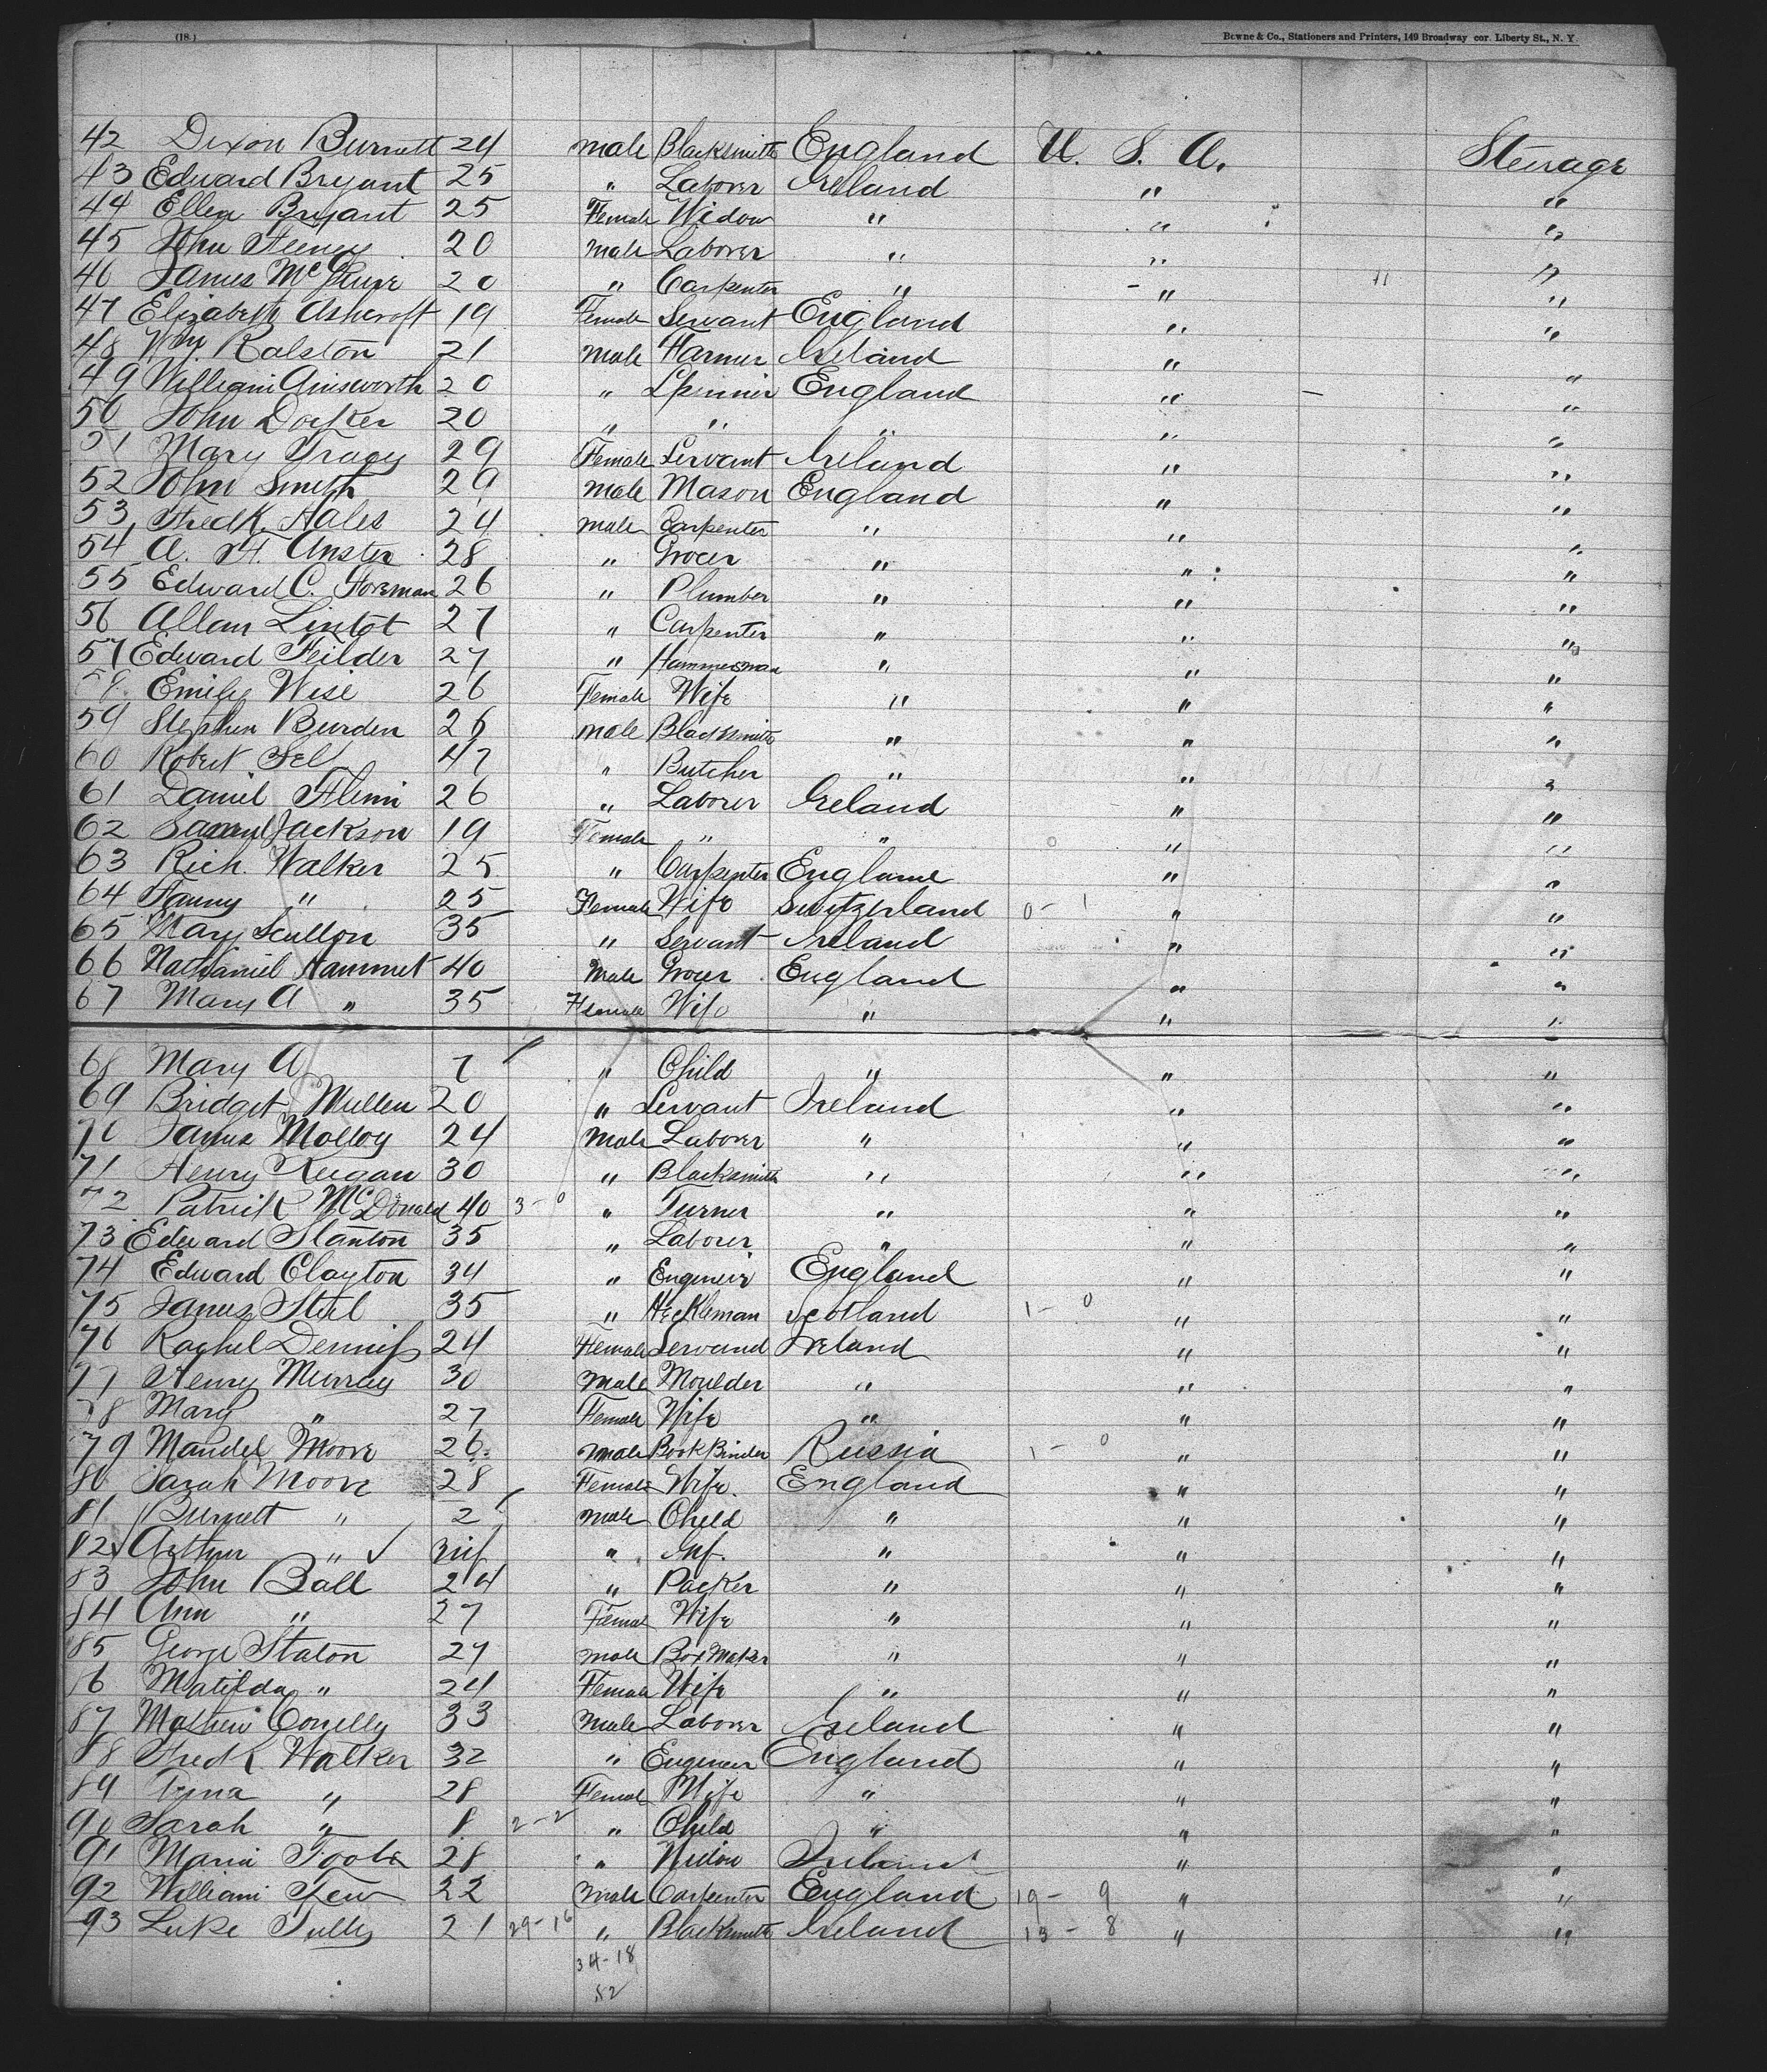 (18.) Bowne & Co., Stationers and Printers, 149 Broadway cor. Liberty St., N. Y.
42 Dixon Burnett 24 male Blacksmith England U. S. A. Steerage
43 Edward Bryant 25 " Laborer Ireland " "
44 Ellen Bryant 25 Female Widow " " "
45 John Feeney 20 male Laborer " " "
46 James McGuire 20 " Carpenter " " "
47 Elizabeth Ashcroft 19 Female Servant England " "
48 Wm Ralston 21 male Farmer Ireland " "
49 William Ainsworth 20 " Spinner England " "
50 John 20 " " " " "
51 Mary Tracy 29 Female Servant Ireland " "
52 John Smith 29 male Mason England " "
53 Fredk. Hales 24 male Carpenter " " "
54 A. H. Anster 28 " Grocer " " "
55 Edward C. Foreman 26 " Plumber " " "
56 Allan Lintot 27 " Carpenter " " "
57 Edward Feilder 27 " Hammerman " " "
58 Emily Wise 26 Female Wife " " "
59 Stephen Burden 26 male Blacksmith " " "
60 Robert 47 " Butcher " " "
61 Daniel 26 " Laborer Ireland " "
62 Jackson 19 Female " " " "
63 Rich. Walker 25 " Carpenter England " "
64 Fanny " 25 Female Wife Switzerland 0 - 1 " "
65 Mary Scullon 35 " Servant Ireland " "
66 Nathaniel Hammet 40 Male Grocer England " "
67 Mary A " 35 Female Wife " " "
68 Mary A 7 " Child " " "
69 Bridget Mullen 20 " Servant Ireland " "
70 James Molloy 24 Male Laborer " " "
71 Henry Keegan 30 " Blacksmith " " "
72 Patrick McDonald 40 3 - 0 " Turner " " "
73 Edward Stanton 35 " Laborer " " "
74 Edward Clayton 34 " Engineer England " "
75 James Steel 35 " Heckleman Scotland 1 - 0 " "
76 Rachel Dennis 24 Female Servand Ireland " "
77 Henry Murray 30 Male Moulder " " "
78 Mary " 27 Female Wife " " "
79 Mandel Moore 26 male Book Binder Russia 1 - 0 " "
80 Sarah Moore 28 Female Wife. England " "
81 Burnett " 2 male Child " " "
82 Arthur " ✓ inf " Inf. " " "
83 John Ball 24 " Packer " " "
84 Ann " 27 Female Wife " " "
85 George Staton 27 male Box Maker " " "
86 Matilda " 24 Female Wife " " "
87 Mathew Conelly 33 Male Laborer Ireland " "
88 Fredk. Walker 32 " Engineer England " "
89 " 28 Female Wife " " "
90 Sarah " 8 2 - 2 " Child " " "
91 Maria 28 " Widow Ireland " "
92 William 22 Male Carpenter England 19 - 9 " "
93 Luke Tully 21 29 - 16 " Blacksmith Ireland 13 - 8 " "
34 - 18
52